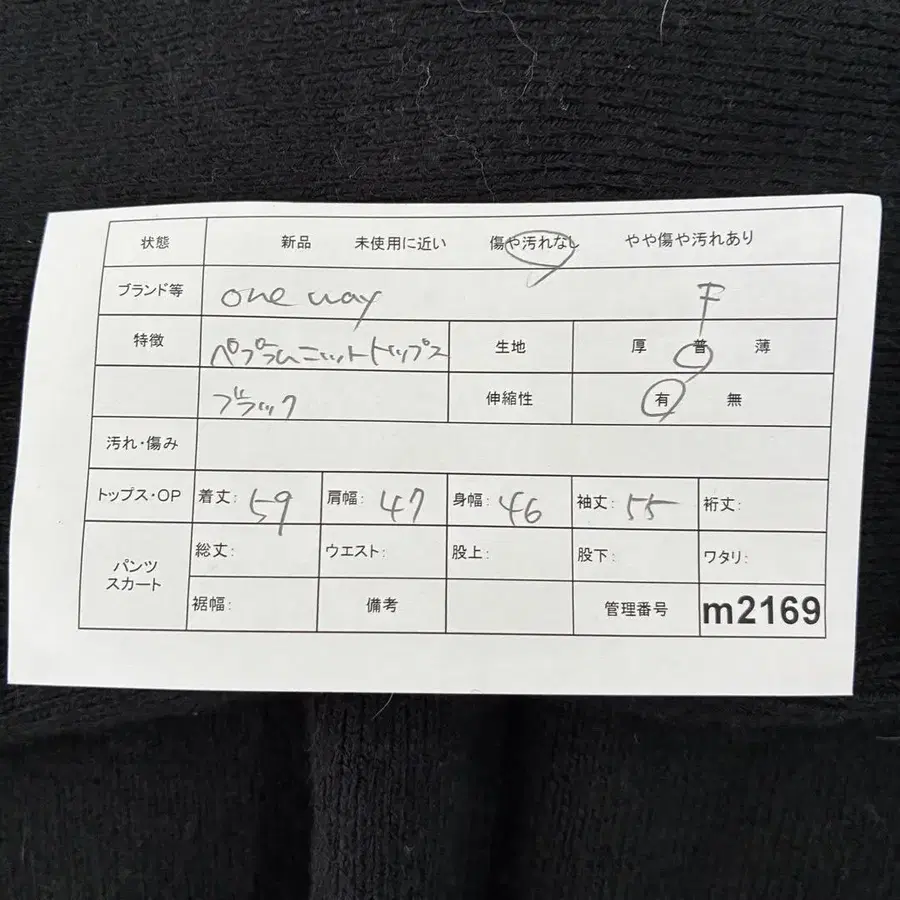 状態 新品 未使用に近い 傷や汚れなし やや傷や汚れあり
ブランド等 one way F
特徴 ペプラムニットトップス 生地 厚 普 薄
ブラック 伸縮性 有 無
汚れ・傷み
トップス・OP 着丈: 59 肩幅: 47 身幅: 46 袖丈: 55 裄丈:
パンツ スカート 総丈: ウエスト: 股上: 股下: ワタリ:
裾幅: 備考 管理番号 m2169